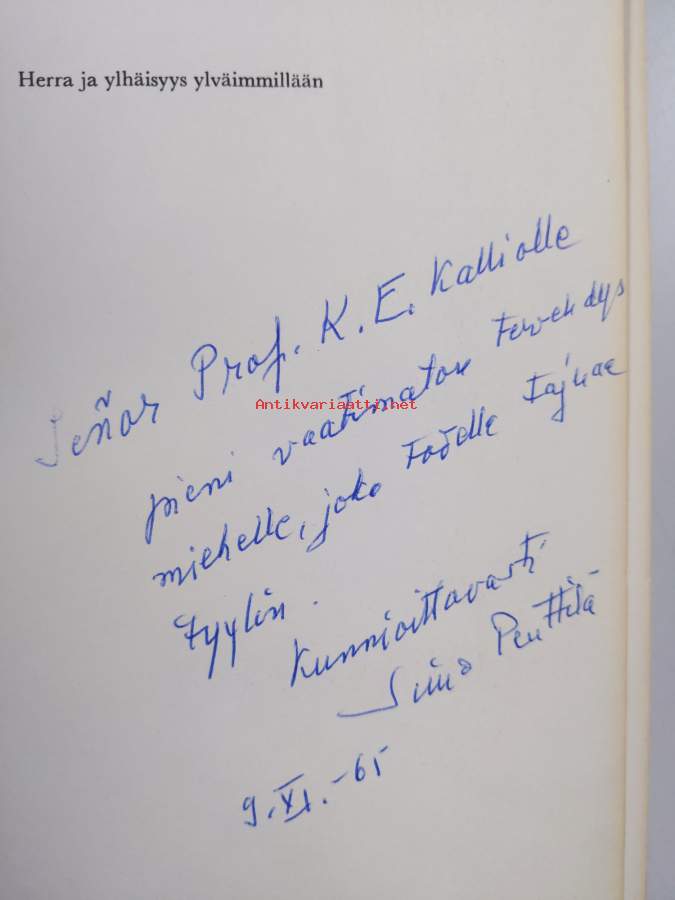 Herra ja ylhäisyys ylväimmillään
Señor Prof. K. E. Kalliolle
Antikvariaatti.net
pieni vaatimaton tervehdys
miehelle, joka todella tajuaa
tyylin.
Kunnioittavasti
Simo Penttilä
9.XI.-65